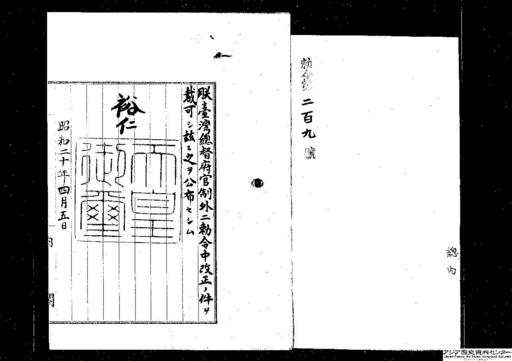 勅令第二百九號
總内
朕臺灣總督府官制外二勅令中改正ノ件ヲ
裁可シ茲ニ之ヲ公布セシム
裕仁
天皇御璽
昭和二十年四月五日
内閣
アジア歴史資料センター